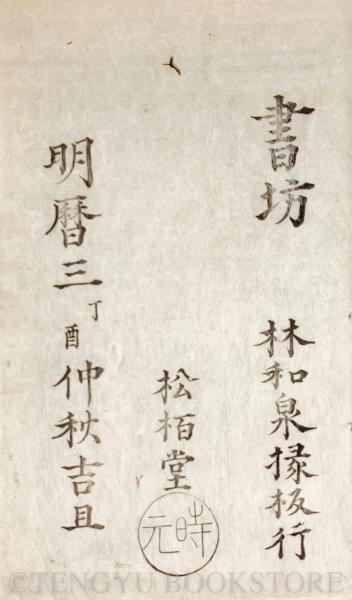 書坊 林和泉掾板行
松栢堂
時元
明暦三丁酉仲秋吉旦
©TENGYU BOOKSTORE